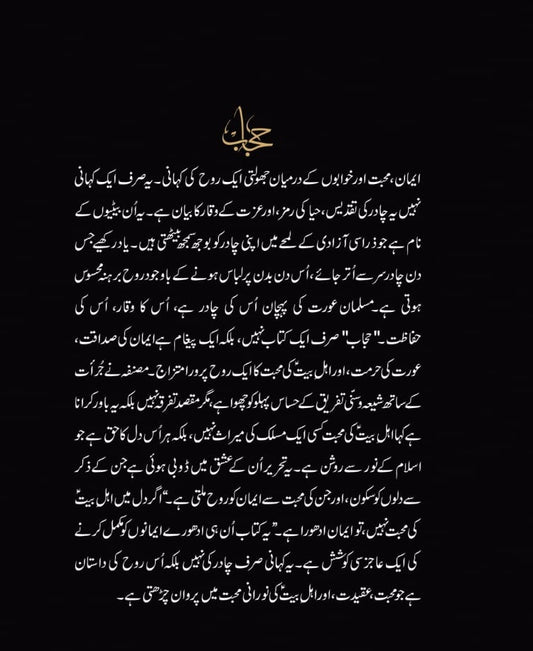 حجاب
ایمان، محبت اور خوابوں کے درمیان جھولتی ایک روح کی کہانی۔ یہ صرف ایک کہانی
نہیں یہ چادر کی تقدیس، حیا کی رمز، اور عزت کے وقار کا بیان ہے۔ یہ اُن بیٹیوں کے
نام ہے جو ذرا سی آزادی کے لمحے میں اپنی چادر کو بوجھ سمجھ بیٹھتی ہیں۔ یاد رکھیے جس
دن چادر سر سے اُتر جائے، اُس دن بدن پر لباس ہونے کے باوجود روح برہنہ محسوس
ہوتی ہے۔ مسلمان عورت کی پہچان اُس کی چادر ہے، اُس کا وقار، اُس کی
حفاظت۔ "حجاب" صرف ایک کتاب نہیں، بلکہ ایک پیغام ہے ایمان کی صداقت،
عورت کی حرمت، اور اہل بیتؑ کی محبت کا ایک روح پرور امتزاج۔ مصنفہ نے جُرأت
کے ساتھ شیعہ و سنّی تفریق کے حساس پہلو کو چھوا ہے، مگر مقصد تفرقہ نہیں بلکہ یہ باور کرانا
ہے کہ اہل بیتؑ کی محبت کسی ایک مسلک کی میراث نہیں، بلکہ ہر اُس دل کا حق ہے جو
اسلام کے نور سے روشن ہے۔ یہ تحریر اُن کے عشق میں ڈوبی ہوئی ہے جن کے ذکر
سے دلوں کو سکون، اور جن کی محبت سے ایمان کو روح ملتی ہے۔ “اگر دل میں اہل بیتؑ
کی محبت نہیں، تو ایمان ادھورا ہے۔” یہ کتاب اُن ہی ادھورے ایمانوں کو مکمل کرنے
کی ایک عاجز سی کوشش ہے۔ یہ کہانی صرف چادر کی نہیں بلکہ اُس روح کی داستان
ہے جو محبت، عقیدت، اور اہل بیتؑ کی نورانی محبت میں پروان چڑھتی ہے۔